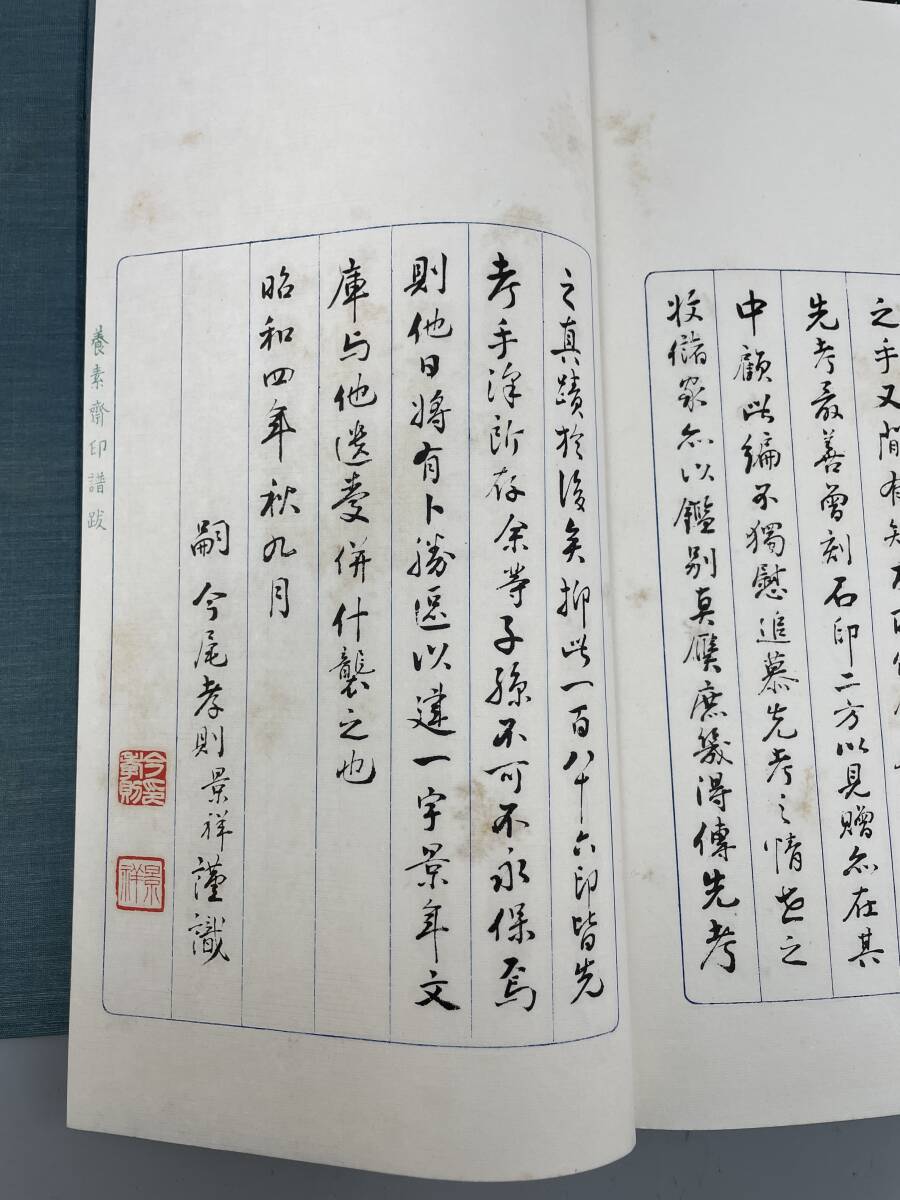 之手又間有
先考最善曾刻石印二方以見贈亦在其
中顧此編不獨慰追慕先考之情世之
收儲家亦以鑑別真贋庶幾得傳先考
之真蹟於後矣抑此一百八十六印皆先
考手澤所存余等子孫不可不永保焉
則他日將有卜勝區以建一宇景年文
庫与他遺愛併什襲之也
昭和四年秋九月
嗣 今尾孝則景祥謹識
養素齋印譜跋
景祥